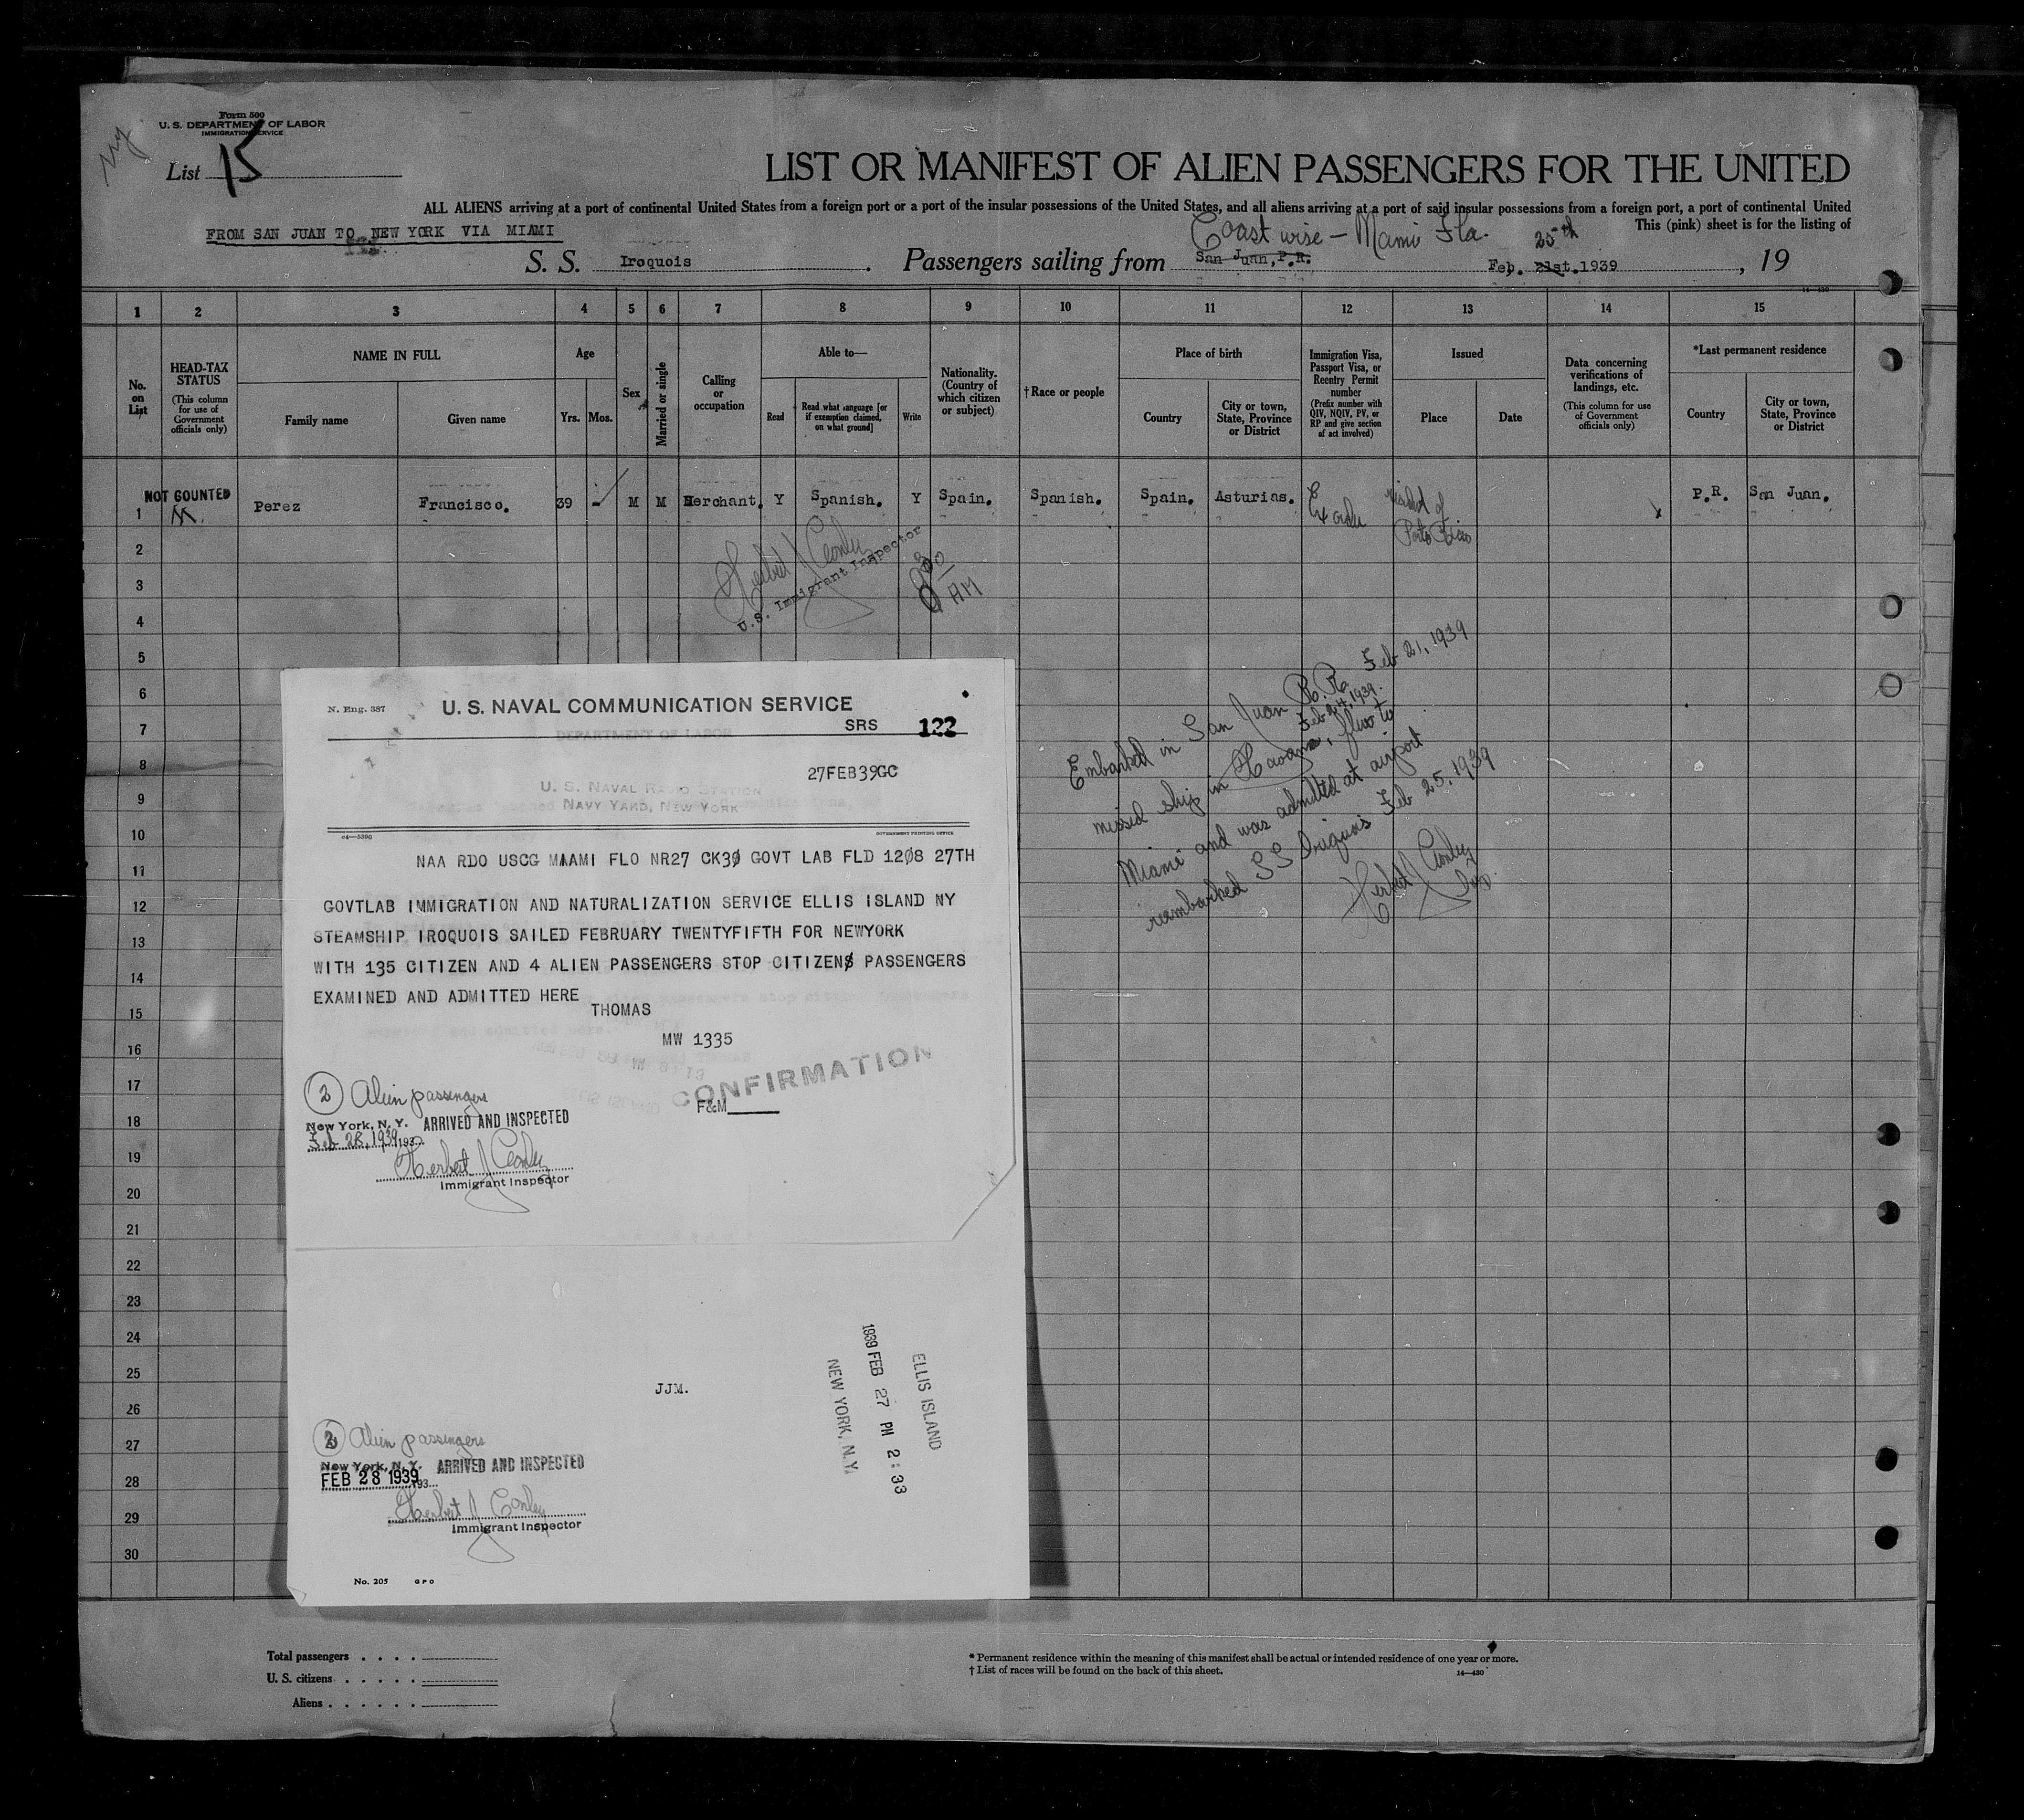 Form 500
U. S. DEPARTMENT OF LABOR
IMMIGRATION SERVICE
NY
List 15
LIST OR MANIFEST OF ALIEN PASSENGERS FOR THE UNITED
ALL ALIENS arriving at a port of continental United States from a foreign port or a port of the insular possessions of the United States, and all aliens arriving at a port of said insular possessions from a foreign port, a port of continental United
This (pink) sheet is for the listing of
FROM SAN JUAN TO NEW YORK VIA MIAMI
Coastwise - Miami Fla. 25th
S. S. Iroquois. Passengers sailing from San Juan, P.R. Feb. 21st. 1939, 19
1 2 3 4 5 6 7 8 9 10 11 12 13 14 15
No. on List
HEAD-TAX STATUS
(This column for use of Government officials only)
NAME IN FULL
Family name
Given name
Age
Yrs.
Mos.
Sex
Married or single
Calling or occupation
Able to—
Read
Read what language [or if exemption claimed, on what ground]
Write
Nationality. (Country of which citizen or subject)
†Race or people
Place of birth
Country
City or town, State, Province or District
Immigration Visa, Passport Visa, or Reentry Permit number
(Prefix number with QIV, NQIV, PV, or RP and give section of act involved)
Issued
Place
Date
Data concerning verifications of landings, etc.
(This column for use of Government officials only)
*Last permanent residence
Country
City or town, State, Province or District
NOT COUNTED
1 Perez Francisco. 39 - M M Merchant. Y Spanish. Y Spain. Spanish. Spain. Asturias. P.R. San Juan.
Porto Rico
2
Herbert J Conley
U.S. Immigrant Inspector
8 30 AM
3
4
5
6
7
8
9
10
11
12
13
14
15
16
17
18
19
20
21
22
23
24
25
26
27
28
29
30
Embarked in San Juan P.R. Feb 21, 1939
missed ship in Havana, Feb 24, 1939. flew to
Miami and was admitted at airport
reembarked SS Iriquois Feb 25, 1939
Herbert J Conley
Insp.
N. Eng. 387
U. S. NAVAL COMMUNICATION SERVICE
SRS 122
DEPARTMENT OF LABOR
27FEB39GC
U. S. NAVAL RADIO STATION
NAVY YARD, NEW YORK
04—3390
GOVERNMENT PRINTING OFFICE
NAA RDO USCG MAAMI FLO NR27 CK30 GOVT LAB FLD 1208 27TH
GOVTLAB IMMIGRATION AND NATURALIZATION SERVICE ELLIS ISLAND NY
STEAMSHIP IROQUOIS SAILED FEBRUARY TWENTYFIFTH FOR NEWYORK
WITH 135 CITIZEN AND 4 ALIEN PASSENGERS STOP CITIZENS PASSENGERS
EXAMINED AND ADMITTED HERE
THOMAS
MW 1335
CONFIRMATION
F&M
2 Alien passengers
New York, N. Y. ARRIVED AND INSPECTED
Feb 28, 1939 193
Herbert J Conley
Immigrant Inspector
JJM.
ELLIS ISLAND
1939 FEB 27 PM 2:33
NEW YORK, N.Y.
2 Alien passengers
New York, N. Y. ARRIVED AND INSPECTED
FEB 28 1939 193
Herbert J Conley
Immigrant Inspector
No. 205 GPO
Total passengers
U. S. citizens
Aliens
* Permanent residence within the meaning of this manifest shall be actual or intended residence of one year or more.
† List of races will be found on the back of this sheet.
14—430